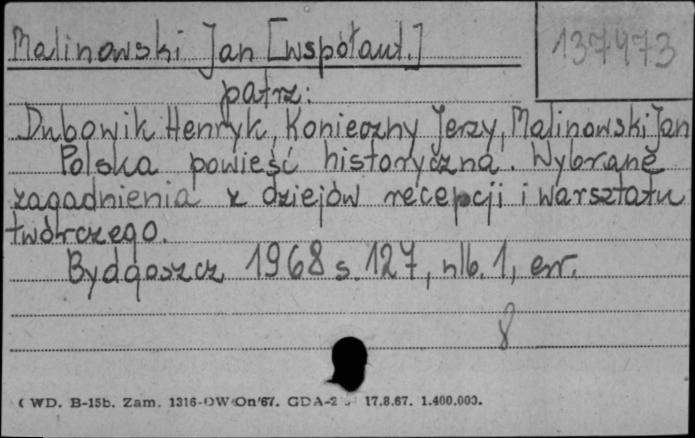 Malinowski Jan [współaut.]
137473
patrz:
Dubowik Henryk, Konieczny Jerzy, Malinowski Jan
Polska powieść historyczna. Wybrane
zagadnienia z dziejów recepcji i warsztatu
twórczego.
Bydgoszcz 1968 s. 127, nlb. 1, err.
8
WD. B-15b. Zam. 1316-OW/On/67. 17.8.67. 1.400.000.